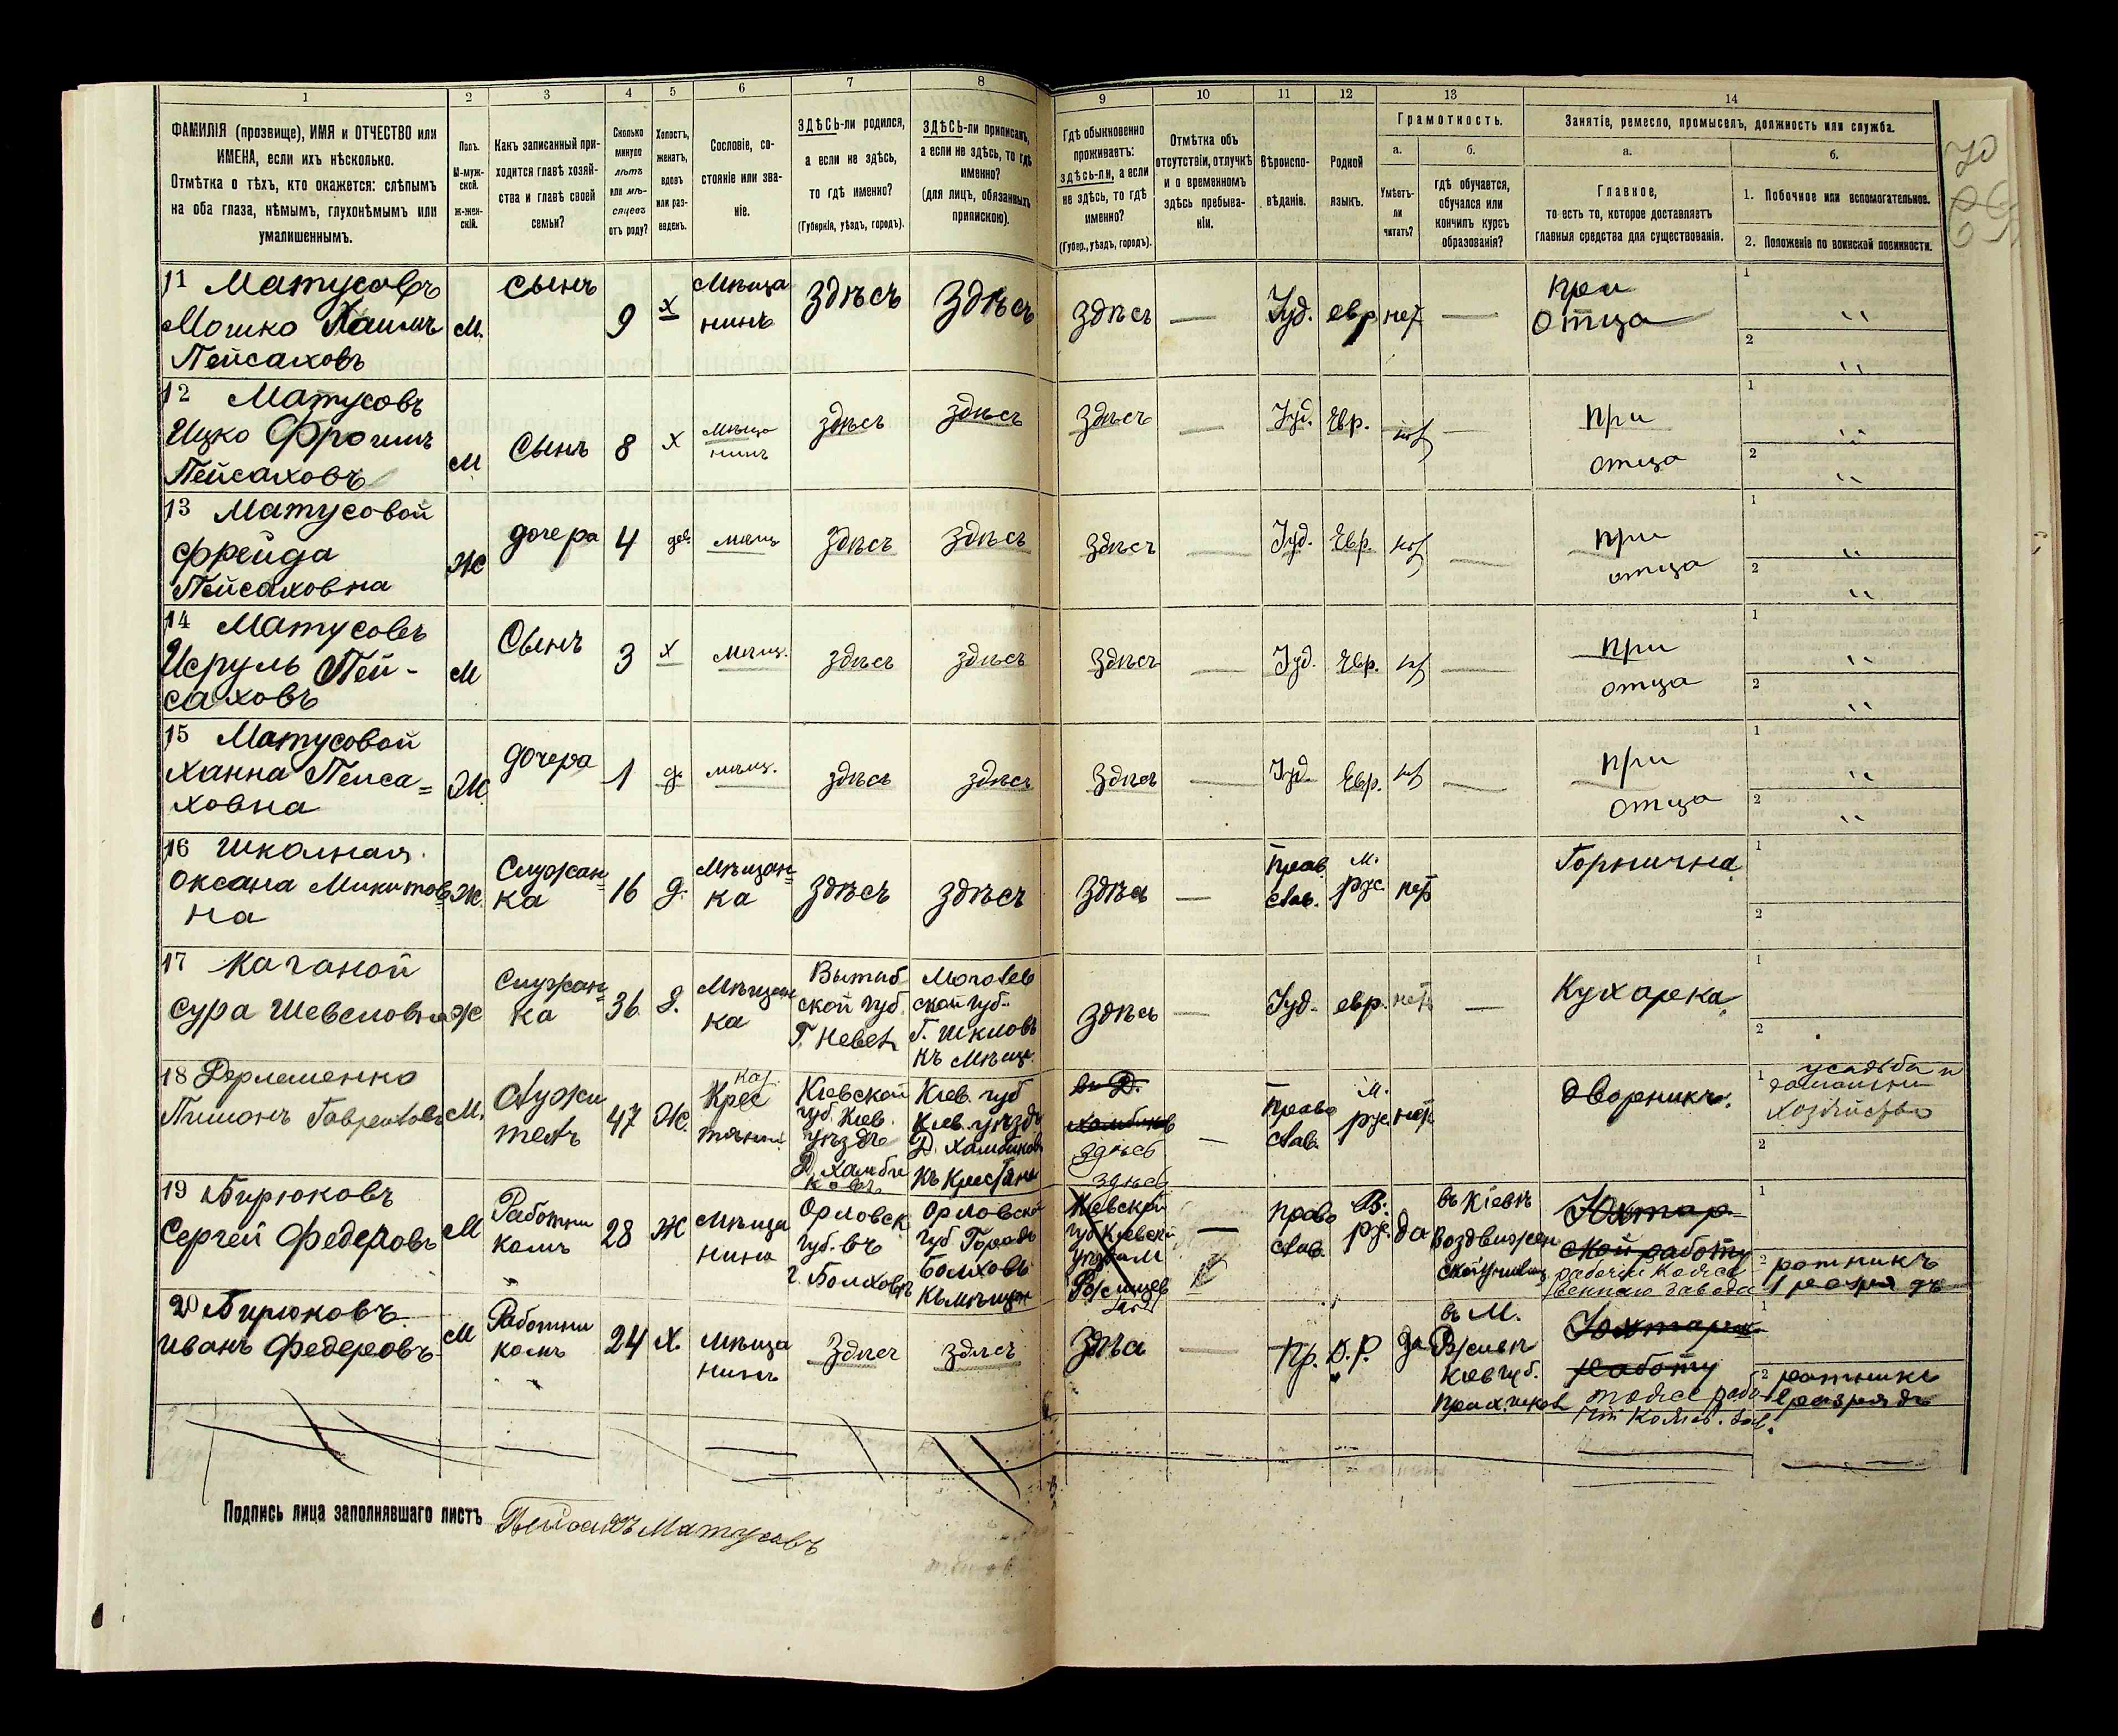 1 2 3 4 5 6 7 8 9 10 11 12 13 14
ФАМИЛІЯ (прозвище), ИМЯ и ОТЧЕСТВО или
ИМЕНА, если ихъ нѣсколько.
Отмѣтка о тѣхъ, кто окажется: слѣпымъ
на оба глаза, нѣмымъ, глухонѣмымъ или
умалишеннымъ.
Полъ.
М-муж-
ской.
Ж-жен-
скій.
Какъ записанный при-
ходится главѣ хозяй-
ства и главѣ своей
семьи?
Сколько
минуло
лѣтъ
или мѣ-
сяцевъ
отъ роду?
Холостъ,
женатъ,
вдовъ
или раз-
веденъ.
Сословіе, со-
стояніе или зва-
ніе.
ЗДѢСЬ-ли родился,
а если не здѣсь,
то гдѣ именно?
(Губернія, уѣздъ, городъ).
ЗДѢСЬ-ли приписанъ,
а если не здѣсь, то гдѣ
именно?
(для лицъ, обязанныхъ
припискою).
Гдѣ обыкновенно
проживаетъ:
здѣсь-ли, а если
не здѣсь, то гдѣ
именно?
(Губер., уѣздъ, городъ).
Отмѣтка объ
отсутствіи, отлучкѣ
и о временномъ
здѣсь пребыва-
ніи.
Вѣроиспо-
вѣданіе.
Родной
языкъ.
Грамотность.
а.
Умѣетъ-
ли
читать?
б.
гдѣ обучается,
обучался или
кончилъ курсъ
образованія?
Занятіе, ремесло, промыселъ, должность или служба.
а.
Главное,
то есть то, которое доставляетъ
главныя средства для существованія.
б.
1. Побочное или вспомогательное.
2. Положеніе по воинской повинности.
11 Матусовъ
Мошко Хаимъ
Пейсаховъ
М.
сынъ
9
х
Мѣща
нинъ
Здѣсъ
Здѣсъ
Здѣсъ
—
Іуд.
евр
нет
—
при
отца
1
2
12 Матусовъ
Ицко Фроимъ
Пейсаховъ
М
Сынъ
8
х
Мѣща
нинъ
здѣсъ
здѣсъ
Здѣсъ
—
Іуд.
Евр.
нет
—
при
отца
1
2
13 Матусовой
Фрейда
Пейсаховна
Ж
дочера
4
дев.
мѣщ
Здѣсъ
Здѣсъ
Здѣсъ
—
Іуд.
Евр.
нет
—
при
отца
1
2
14 Матусовъ
Исруль Пей-
саховъ
М
Сынъ
3
х
Мѣщ.
здѣсъ
здѣсъ
Здѣсъ
—
Іуд.
Евр.
нет
—
при
отца
1
2
15 Матусовой
Ханна Пейса=
ховна
Ж.
дочера
1
д.
мѣщ.
здѣсъ
здѣсъ
Здѣсъ
—
Іуд.
Евр.
нет
—
при
отца
1
2
16 Школная
Оксана Микитов
на
Ж.
Служан=
ка
16
д.
Мѣщан=
ка
Здѣсъ
Здѣсъ
Здѣсъ
—
Прав
слав.
м.
рус.
нет
Горнична
1
2
17 Каганой
Сура Шевеловна
Ж
Служан=
ка
36
д.
Мѣщан
ка
Вытиб
ской губ
Г. Невел
Моголев
ской губ.
Г. Шкловъ
къ Мѣщ.
Здѣсъ
—
Іуд.
евр.
нетъ
—
Кухарека
1
2
18 Дерлеменко
Пимонъ
М.
Служи
тель
47
Ж.
Крес
тянин
Кіевской
губ. Кіев.
уѣзде
Д. Хамби
ковъ
Кіев. губ
Кіев. уѣзд
Д. Хамбиков
къ Крестяна
здѣсь
—
Право
слав.
М.
рус.
нет
дворникъ.
1 усадьба и
домашни
хозяйство
2
19 Бирюковъ
Сергей Федеровъ
М
Работни
комъ
28
Ж
Мѣща
нина
Орловск.
губ. въ
г. Болховѣ
Орловской
губ Городъ
Болховъ
къ мѣщан
здѣсь
Кіевской
губ Кіевск
—
право
слав.
В.
рус.
да
въ Кіевѣ
Воздвижен
ской училищ
Юхтар
ской работы
рабочій Кожев
веннаго завода
1
2 ратникъ
1 разрядъ
20 Бирюковъ
Иванъ Федеровъ
М
Работни
комъ
24
Х.
Мѣща
нинъ
Здѣсъ
здѣсъ
Здѣсъ
—
Пр.
В.Р.
Да
въ М.
Кіев губ.
Юхтарск
работу
тоже рабо
чій Кожев. зав.
1
2 ратникъ
1 разрядъ
Подпись лица заполнявшаго листъ Пейсахъ Матусовъ